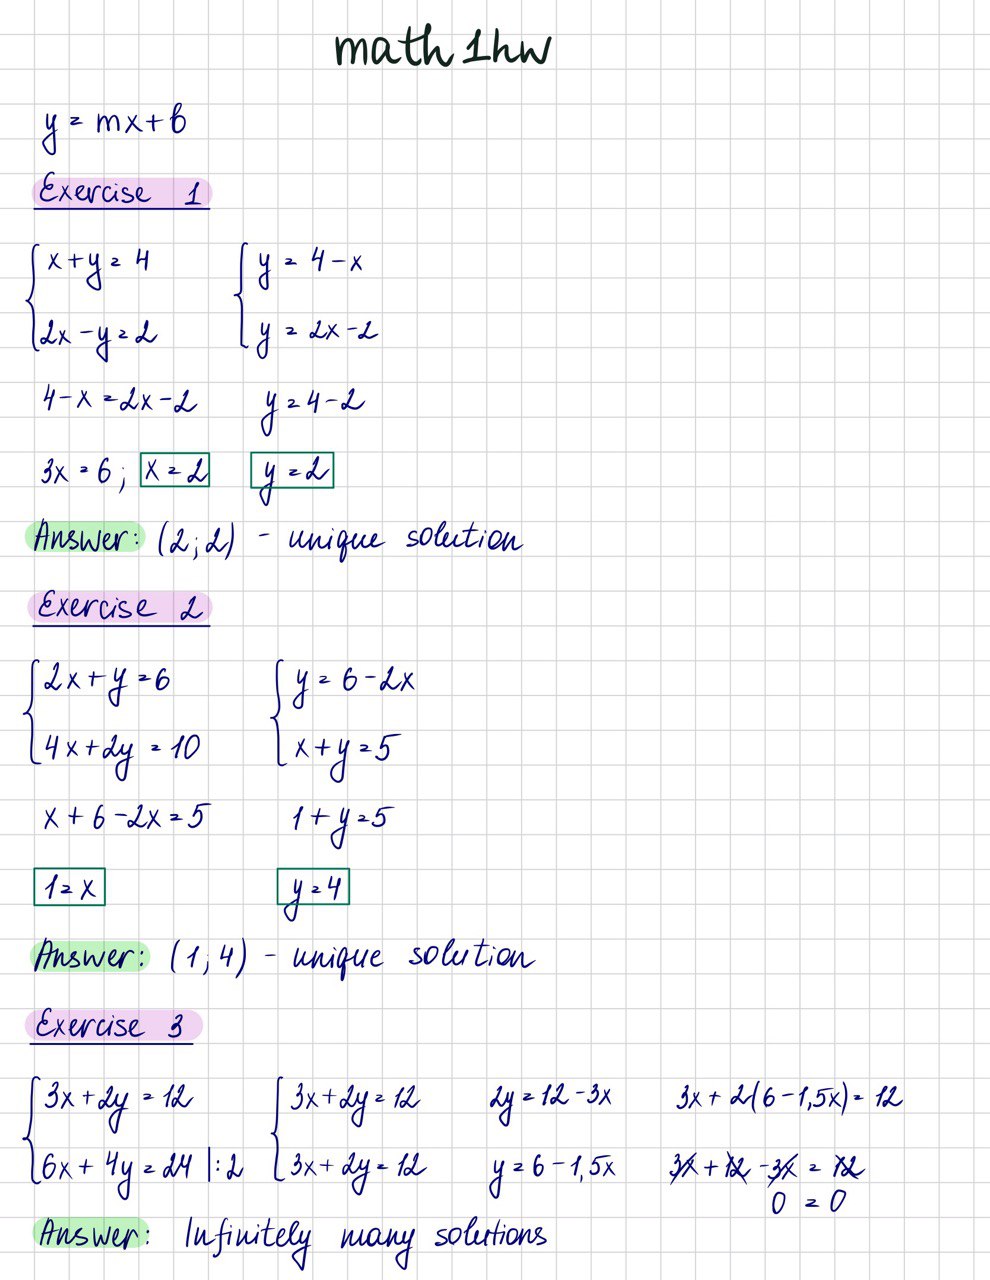 math 1hw
y = mx + b
Exercise 1
x + y = 4    y = 4 - x
2x - y = 2    y = 2x - 2
4 - x = 2x - 2    y = 4 - 2
3x = 6 ; x = 2    y = 2
Answer: (2 ; 2) - unique solution
Exercise 2
2x + y = 6    y = 6 - 2x
4x + 2y = 10    x + y = 5
x + 6 - 2x = 5    1 + y = 5
1 = x    y = 4
Answer: (1 ; 4) - unique solution
Exercise 3
3x + 2y = 12    3x + 2y = 12    2y = 12 - 3x    3x + 2(6 - 1,5x) = 12
6x + 4y = 24 | : 2    3x + 2y = 12    y = 6 - 1,5x    3x + 12 - 3x = 12
0 = 0
Answer: Infinitely many solutions